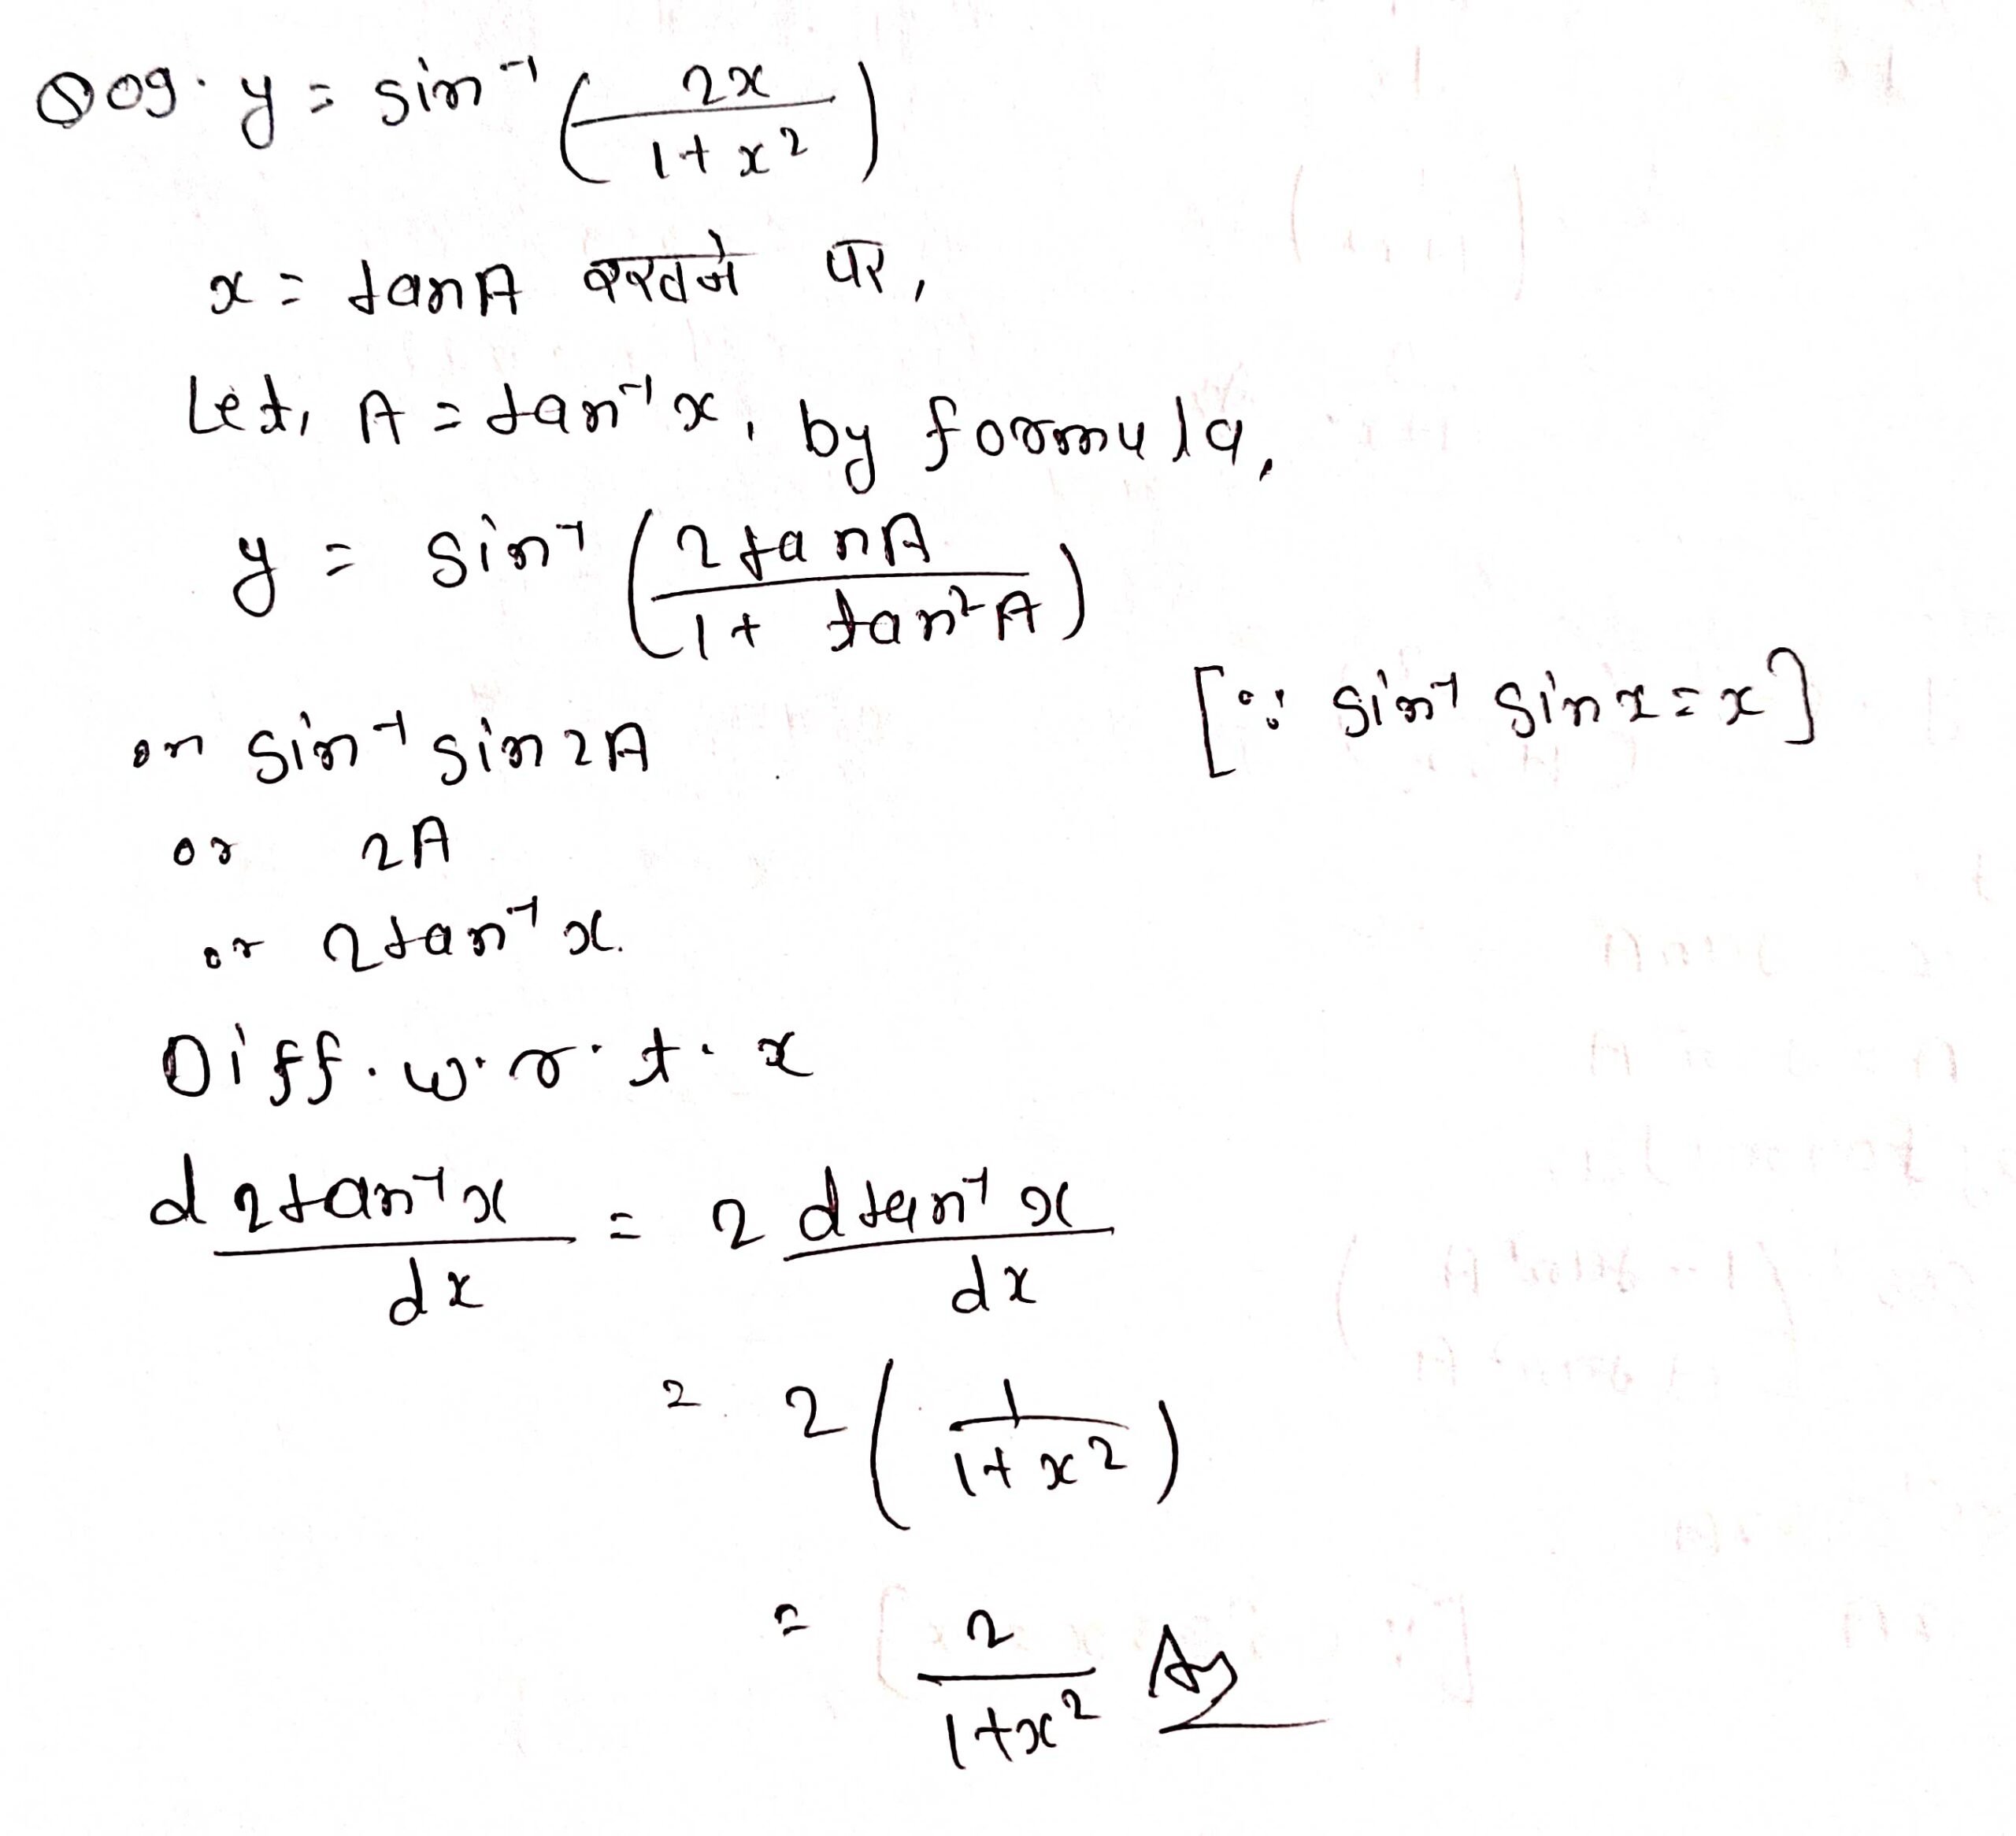 Q09. y = sin⁻¹ (2x / 1+x²)
x = tanA रखने पर,
Let, A = tan⁻¹x, by formula,
y = sin⁻¹ (2tanA / 1+ tan²A)
or sin⁻¹ sin2A [∵ sin⁻¹ sinx = x]
or 2A
or 2tan⁻¹x.
Diff. w.r.t. x
d 2tan⁻¹x / dx = 2 d tan⁻¹x / dx
= 2 (1 / 1+x²)
= 2 / 1+x² Ans